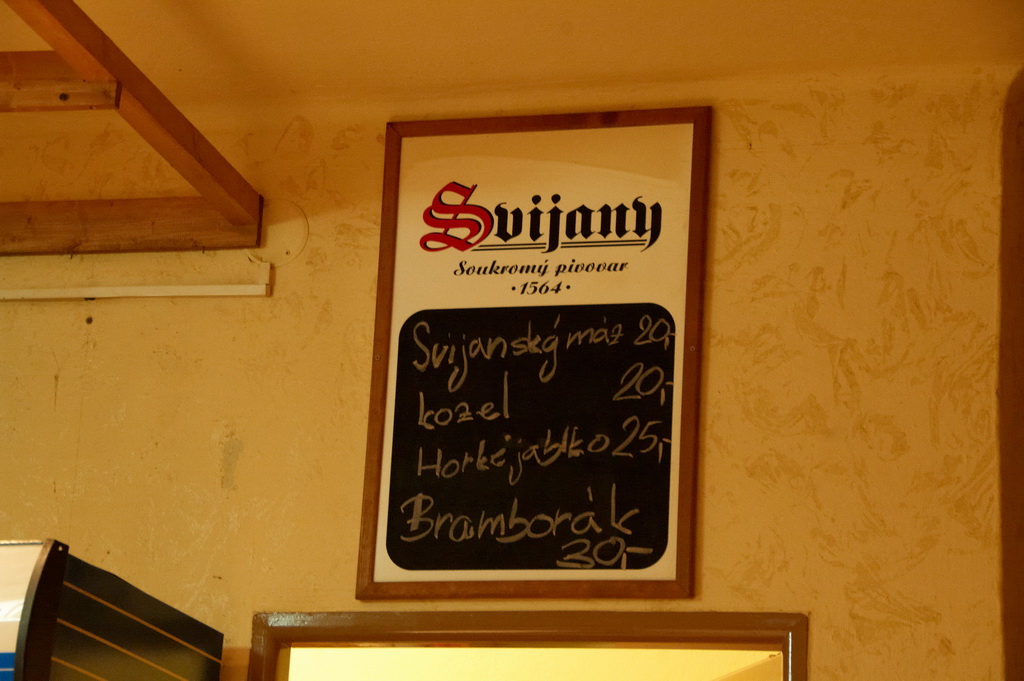 Svijany
Soukromý pivovar
• 1564 •
Svijanský máz 20,-
kozel 20,-
Horké jablko 25,-
Bramborák
30,-